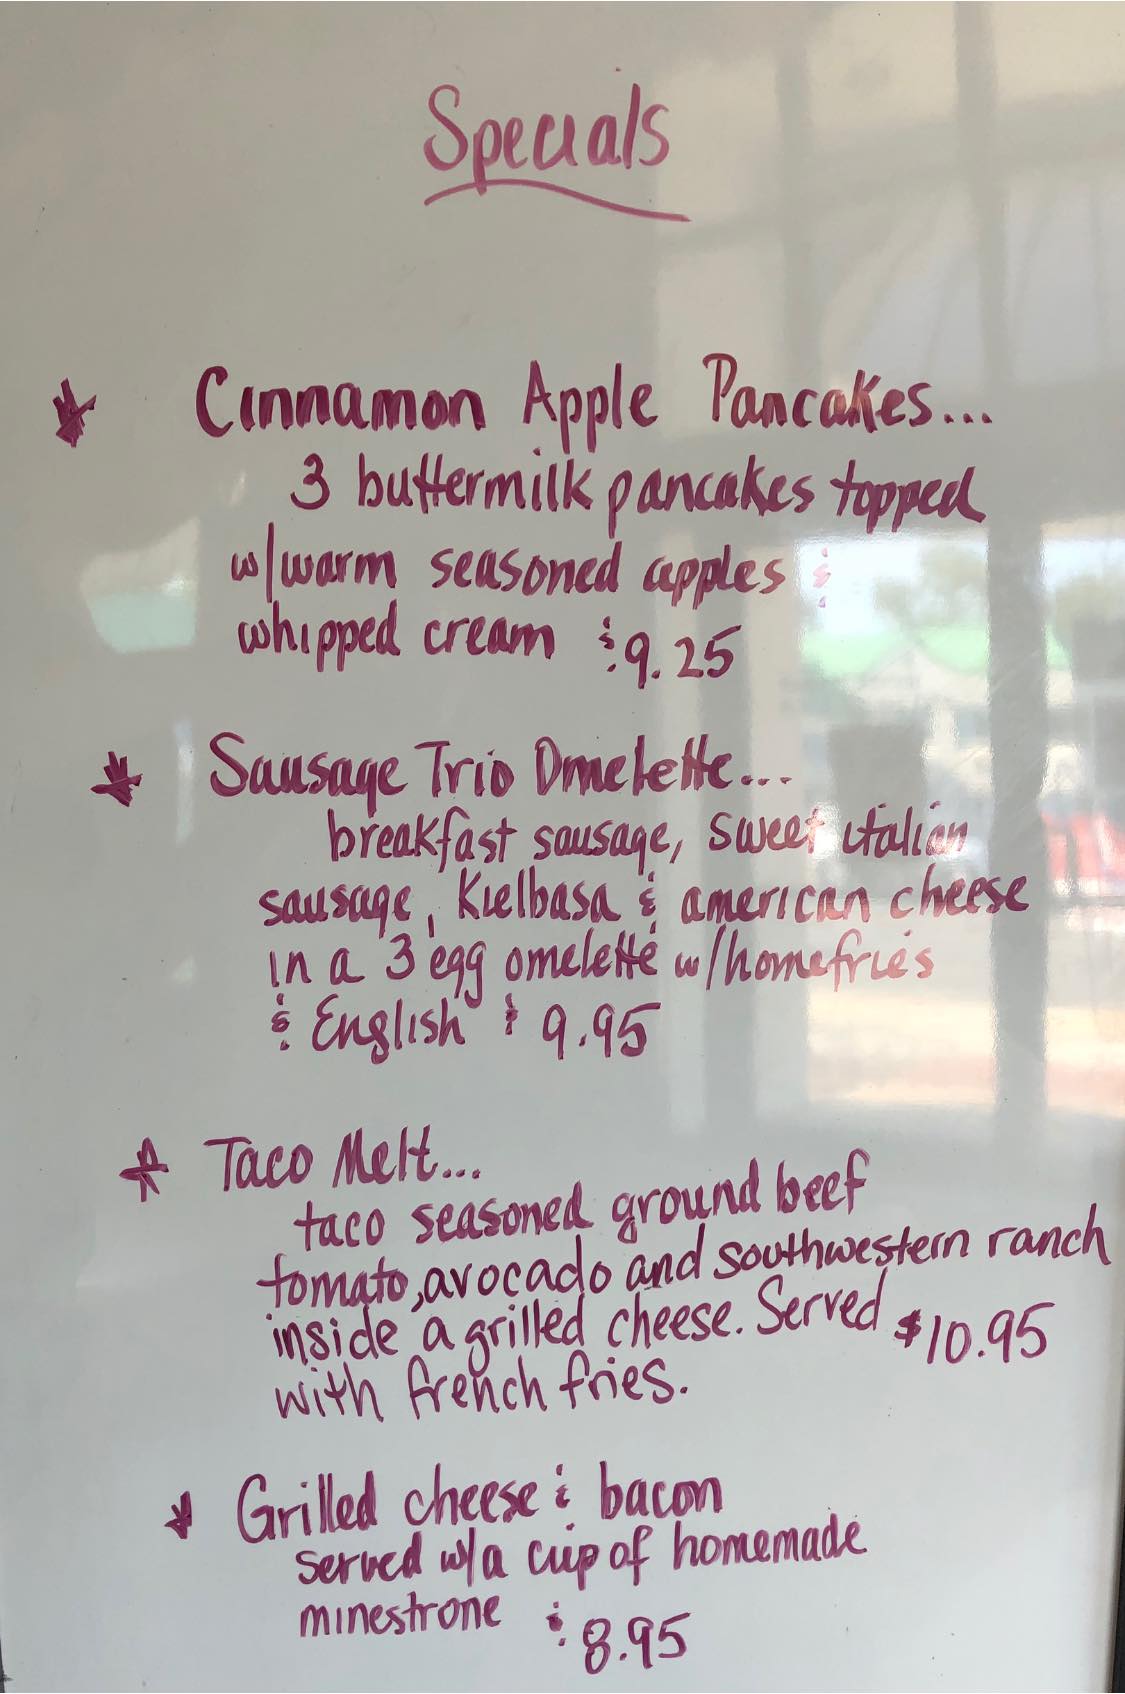 Specials
Cinnamon Apple Pancakes...
3 buttermilk pancakes topped
w/warm seasoned apples &
whipped cream $9.25
Sausage Trio Omelette...
breakfast sausage, sweet italian
sausage, Kielbasa & american cheese
in a 3 egg omelette w/homefries
& English $9.95
Taco Melt...
taco seasoned ground beef
tomato, avocado and southwestern ranch
inside a grilled cheese. Served $10.95
with french fries.
Grilled cheese & bacon
served w/a cup of homemade
minestrone $8.95